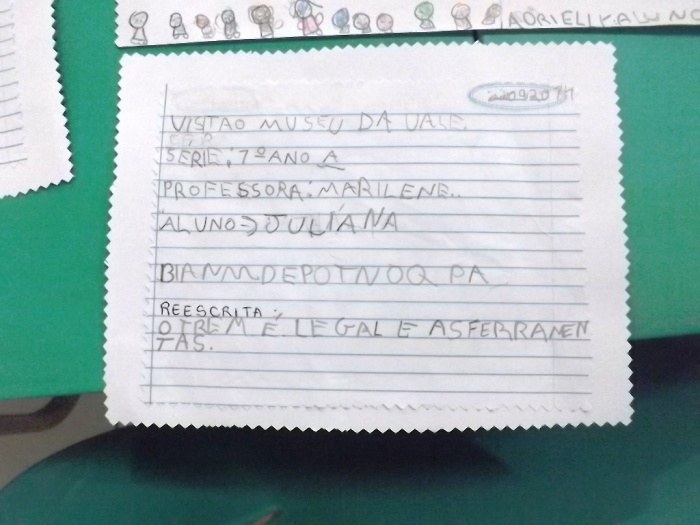 ADRIELI
VISTAO MUSEU DA VALE.
SERIE: 1º ANO A
PROFESSORA: MARILENE..
ALUNO=> JULIANA
BIANMDEPOTNOQ PA
REESCRITA:
O TREM É LEGAL E AS FERRAMEN
TAS.